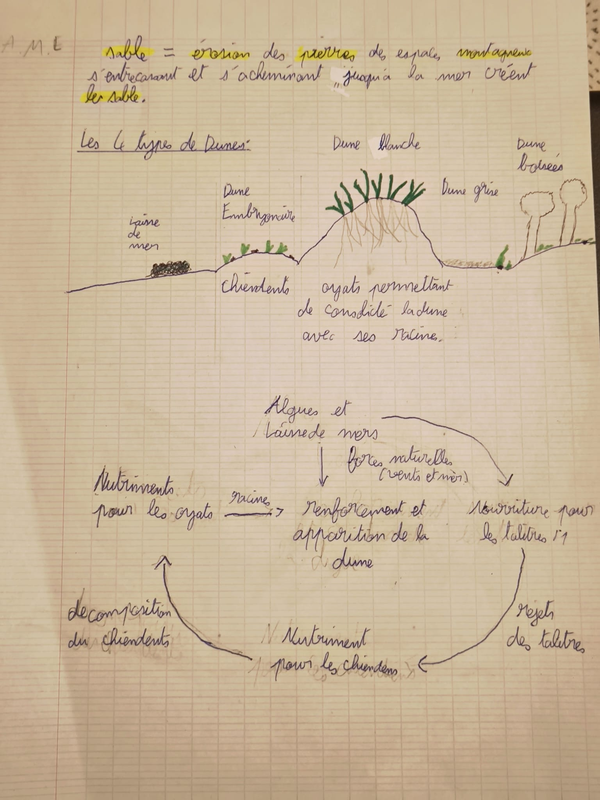 A.M.E
sable = érosion des pierres des espaces montagneux
s'entrecassant et s'acheminant jusqu'à la mer créent
le sable.
Les 4 types de Dunes:
Dune blanche
Dune
boisées
Dune
Embryonnaire
Dune grise
Laine
de
mer
chiendents
oyats permettant
de consolidé la dune
avec ses racines.
Algues et
Laine de mers
forces naturelles
(vents et mer)
Nutriments
pour les oyats
racines
renforcement et
apparition de la
dune
nourriture pour
les talitres
decomposition
du chiendents
Nutriment
pour les chiendens
rejets
des talitres